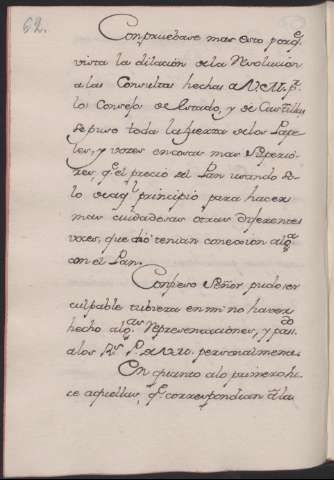 62.
Conpruebase mas esto porq.e
vista la dilación dela Resolucion
alas Consultas hechas a V. M. p.r
los Consejos de Estado, y de Castilla
se puso toda la fuerza delos Pape
les, y vozes en cosas mas superio
res, q.e el precio del Pan usando so
lo de aq.l principio para hacer
mas cuidadosas otras diferentes
voces, que nó tenian conecsion alg.a
con el Pan.
Confieso Señor pudo ser
culpable tubieza en mi no haver
hecho alg.as Representaciones, y pasado
alos R.s P. de V. M. personalmente.
En quanto alo primero hi
ce aquellas, q.e correspondian à la